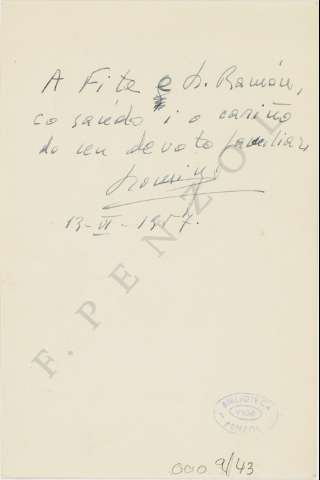 A Fita e D. Ramón,
co saúdo i o cariño
do seu devoto familiar,
13-VI-1957.
F. PENZOL
BIBLIOTECA
VIGO
F. PENZOL
000 9/43